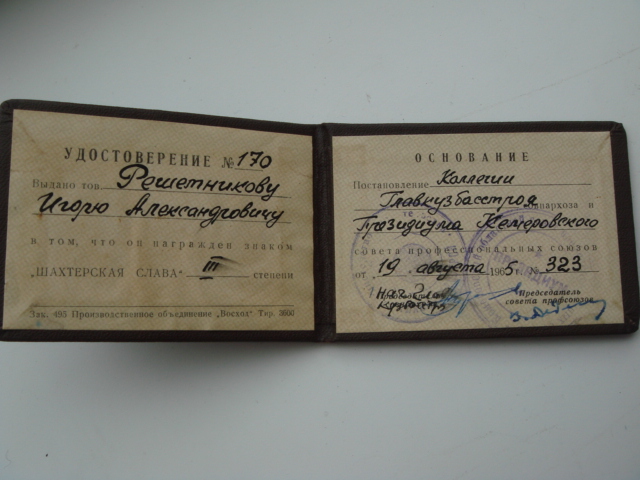 УДОСТОВЕРЕНИЕ № 170
Выдано тов. Решетникову
Игорю Александровичу
в том, что он награжден знаком
"ШАХТЕРСКАЯ СЛАВА" III степени
Зак. 495 Производственное объединение „Восход" Тир. 3600
ОСНОВАНИЕ
Постановление Коллегии
Главкузбасстроя
совнархоза и
Президиума Кемеровского
совета профессиональных союзов
от „19 августа 1965 № 323
Председатель
совета профсоюзов